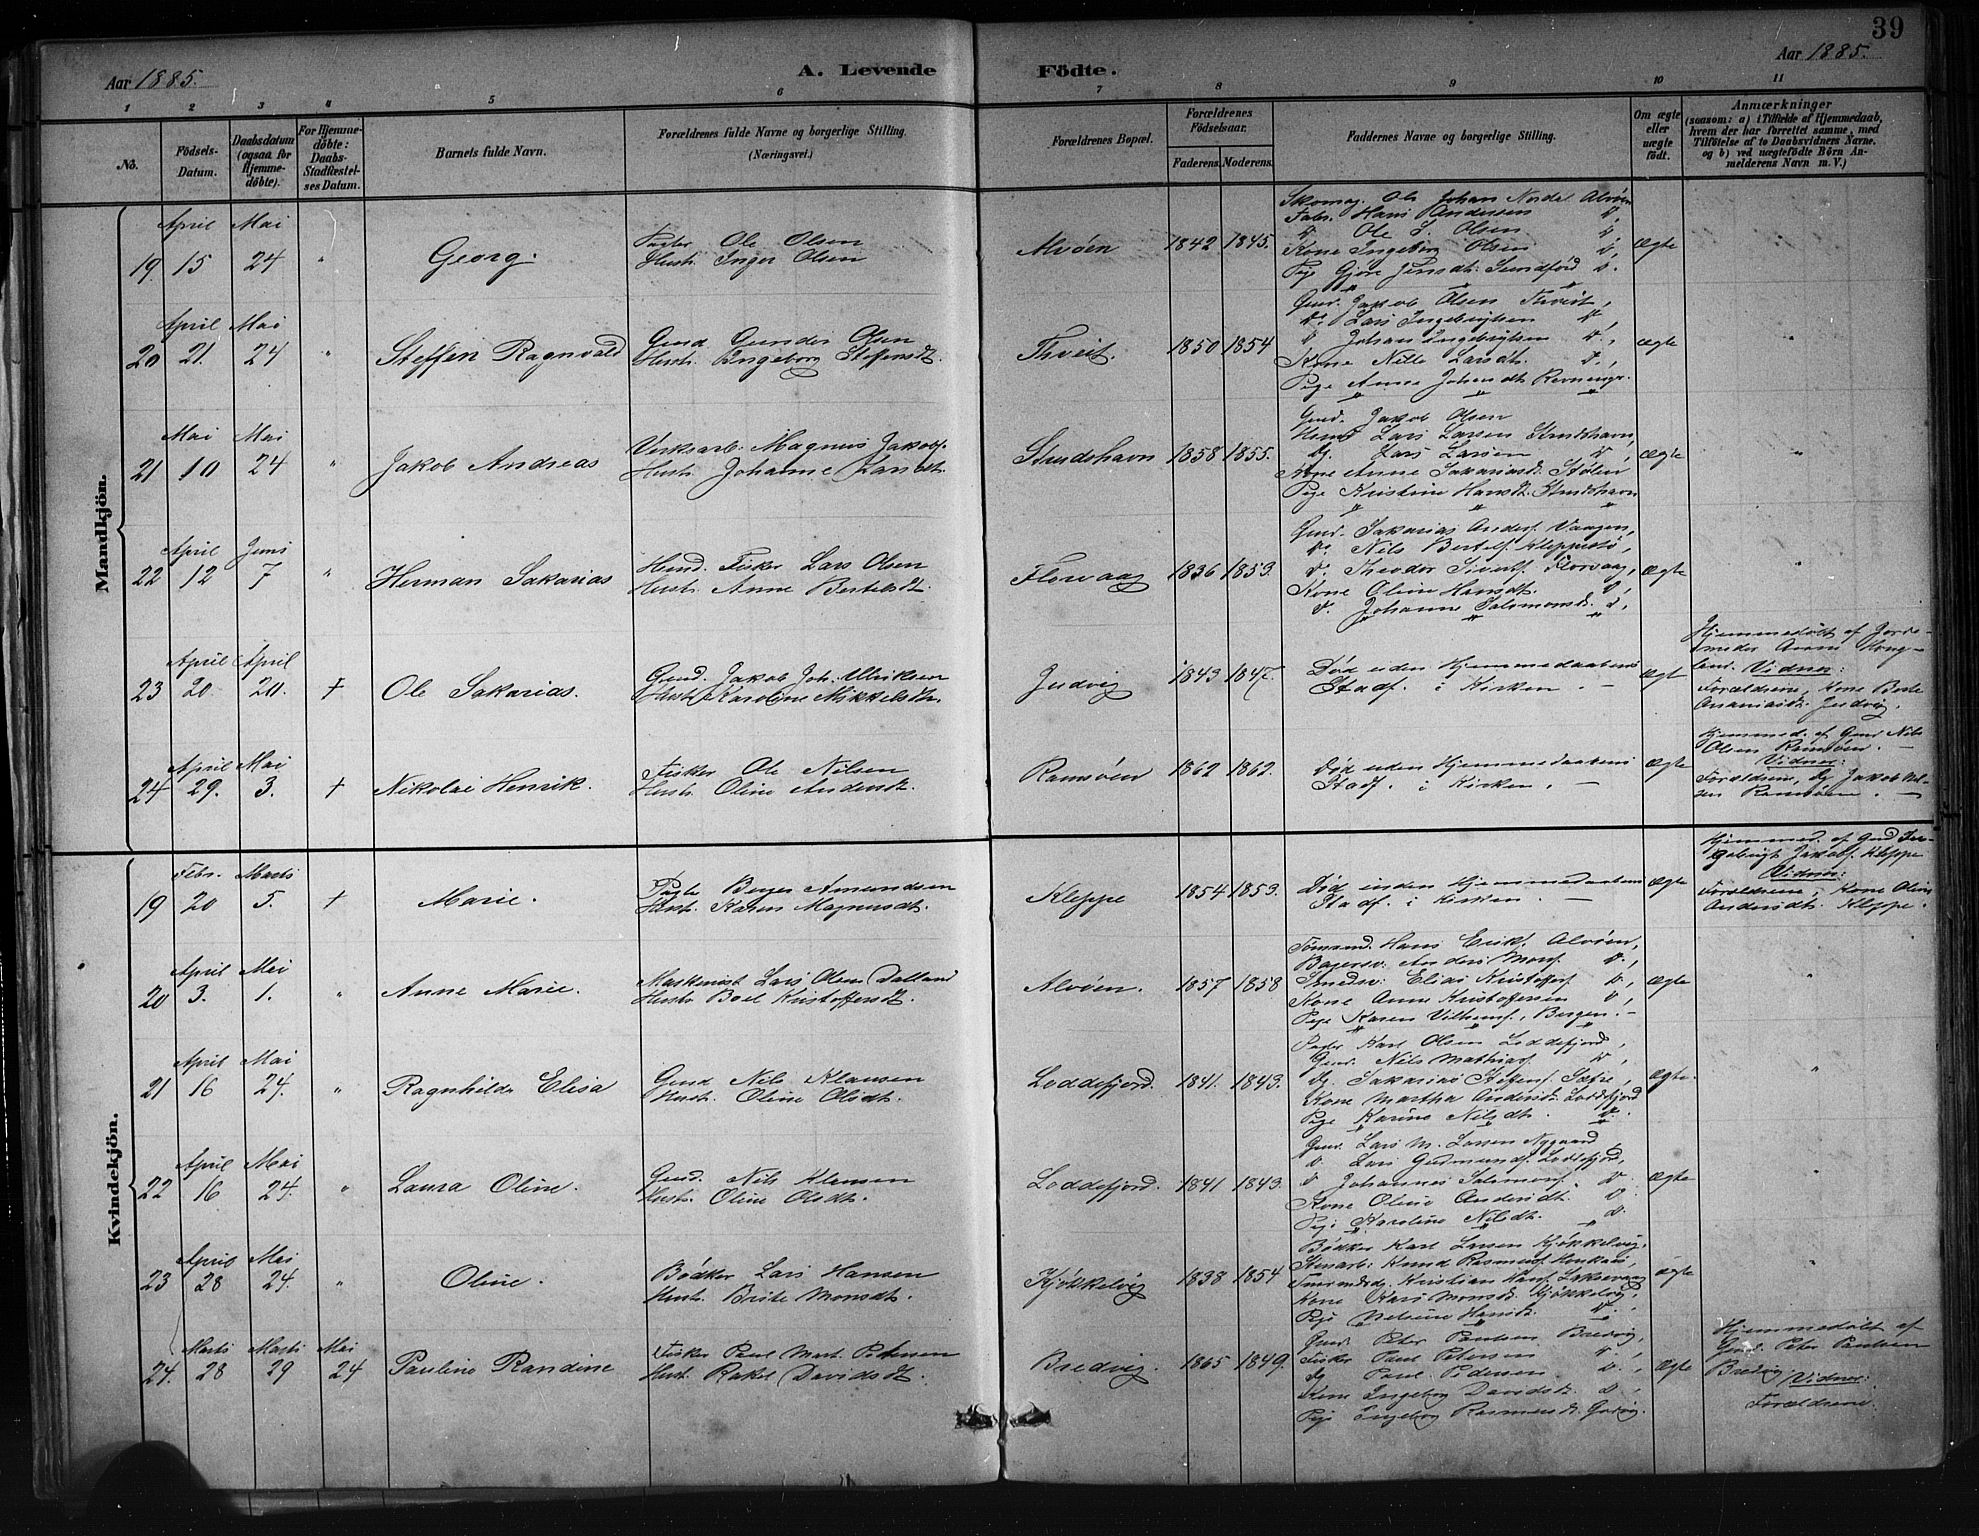 39
Aar 1885.
A. Levende Födte.
Aar 1885.
1 2 3 4 5 6 7 8 9 10 11
No.
Födsels-Datum.
Daabsdatum (ogsaa for Hjemmedöbte).
For Hjemmedöbte: Daabs-Stadfæstelses Datum.
Barnets fulde Navn.
Forældrenes fulde Navne og borgerlige Stilling.
(Næringsvei.)
Forældrenes Bopæl.
Forældrenes Födselsaar.
Faderens. Moderens.
Faddernes Navne og borgerlige Stilling.
Om ægte eller uægte født.
Anmærkninger
(saasom: a) i Tilfælde af Hjemmedaab,
hvem der har forrettet samme, med
Tilföielse af to Daabsvidners Navne,
og b) ved uægtefödte Börn An-
melderens Navn m. V.)
Mandkjön.
19. April 15 Mai 24 " Georg.
Ole Olsen
Hustr. Inger Olsen
Alvøen 1842 1845.
Skomag. Ole Johan Alvøen
Fabr. Hans Andersen D.
D. Ole S. Olsen D
Kone Ingeborg Olsen D.
Pige
Ægte
20 April 21. Mai 24 " Steffen Ragnvald
Gmd Gunder Olsen
Hustr. Ingeborg Steffensdt.
Thveit. 1850 1854
Gmd. Jakob Olsen Thveit,
Do. Lars Ingebrigtsen D.,
D Johan Ingebrigtsen D.,
Kone Nille Larsdt. D.,
Pige Anna Johansdt.
Ægte
21 Mai 10 Mai 24 " Jakob Andreas
Verksarb. Magnus Jakobs.
Hustr. Johanne Larsdt.
Strudshavn 1858 1855.
Gmd. Jakob Olsen
Lars Larsen Strudshavn,
Lars Larsen D.,
Kone Anne Sakariasdt. Stølen
Pige Kristine Hansdt. Strudshavn
Ægte "
22 April 12 Juni 7 " Herman Sakarias
Fisker Lars Olsen
Hustr. Anne Bertelsdt.
Florvaag 1836 1853.
Gmd. Sakarias Anders. Vaagen,
Do. Nils Bertels. Kleppestø,
D. Theodor Sivert. Florvaag,
Kone Oline Hansdt. D,
D. Johanne Salomonsdt. D,
Ægte "
23 April 20. April 20. + Ole Sakarias.
Gmd. Jakob Joh. Ulriksen
Hustr. Karoline Mikkelsdtr.
Judvig 1843 1847.
Død uden Hjemmedaabens
Stadf. i Kirken. —
Ægt
Hjemmedøbt af Jorde-
moder
Vidner:
Forældrene, Kone Berte
Ananiasdt. Judvig.
24 April 29. Mai 3. + Nikolai Henrik.
Fisker Ole Nilsen
Hustr. Oline Andersdt.
Ramsøen 1862 1862.
Død uden Hjemmedaabens
Stadf. i Kirken. —
Ægte
Hjemmed. af Gmd Nils
Olsen Ramsøen. —
Vidner:
Forældrene, Jakob Nil-
sen Ramsøen. —
Kvindekjön.
19 Febr. 20 Marts 5. + Marie.
Amundsen
Hustr. Karen Magnusdt.
Kleppe 1854 1853.
Død uden Hjemmedaabens
Stadf. i Kirken. —
Ægte
Hjemmed. af Gmd In-
gebrigt Jakobs. Kleppe
Vidner:
Forældrene, Kone Oline
Andersdt. Kleppe.
20 April 3. Mai 1. " Anne Marie.
Maskinist Lars Olsen Dalland
Hustr. Boel Kristoffersdt.
Alvøen. 1857 1858
Tømmd. Hans Erik. Alvøen,
Bagersv. Anders Mons. D.,
Smedsv. Elias Kristoffers. D,
Kone Anne Kristoffersen D,
Pige Karen Vilhelms. Bergen. —
Ægte "
21 April 16 Mai 24. " Ragnhilda Elisa
Gmd Nils Klausen
Hustr. Oline Olsdt.
Loddefjord. 1841. 1843.
Karl Olsen Loddefjord,
Gmd. Nils Mathias. D,
Sakarias Steffens.
Kone Martha Andersdt. Loddefjord
Pige Karine Nilsdt. D.
Ægte. "
22 April 16 Mai 24. " Laura Oline.
Gmd. Nils Klausen
Hustr. Oline Olsdt.
Loddefjord. 1841 1843.
Gmd. Lars M. Larsen Nygaard
D. Lars Gudmunds. Loddefjord,
D Johannes Salomons. D.
Kone Oline Andersdt. D.
Pige Karoline Nilsdt. D.
Ægte "
23 April 28 Mai 24. " Oline.
Bødker Lars Hansen
Hustr. Brite Monsdt.
Kjøkkelvig 1838 1854
Bødker Karl Larsen Kjøkkelvig,
Knud Rasmus.
Kristian Hans. Laksevaag
Kone Kari Monsdt. Kjøkkelvig,
Pige Hansdt. D.
Ægte "
24. Marts 28 Marts 29 Mai 24 Pauline Randine
Fisker Paul Mart. Petersen
Hustr. Rakel Davidsdt.
Bredvig. 1865 1849.
Gmd. Peter Paulsen Bredvig,
Fisker Paul Petersen D,
Paul Pedersen D.
Kone Ingeborg Davidsdt. D,
Pige Ingeborg Rasmusdt.
Ægte
Hjemmedøbt af
Gmd. Peter Paulsen
Bredvig Vidner:
Forældrene.